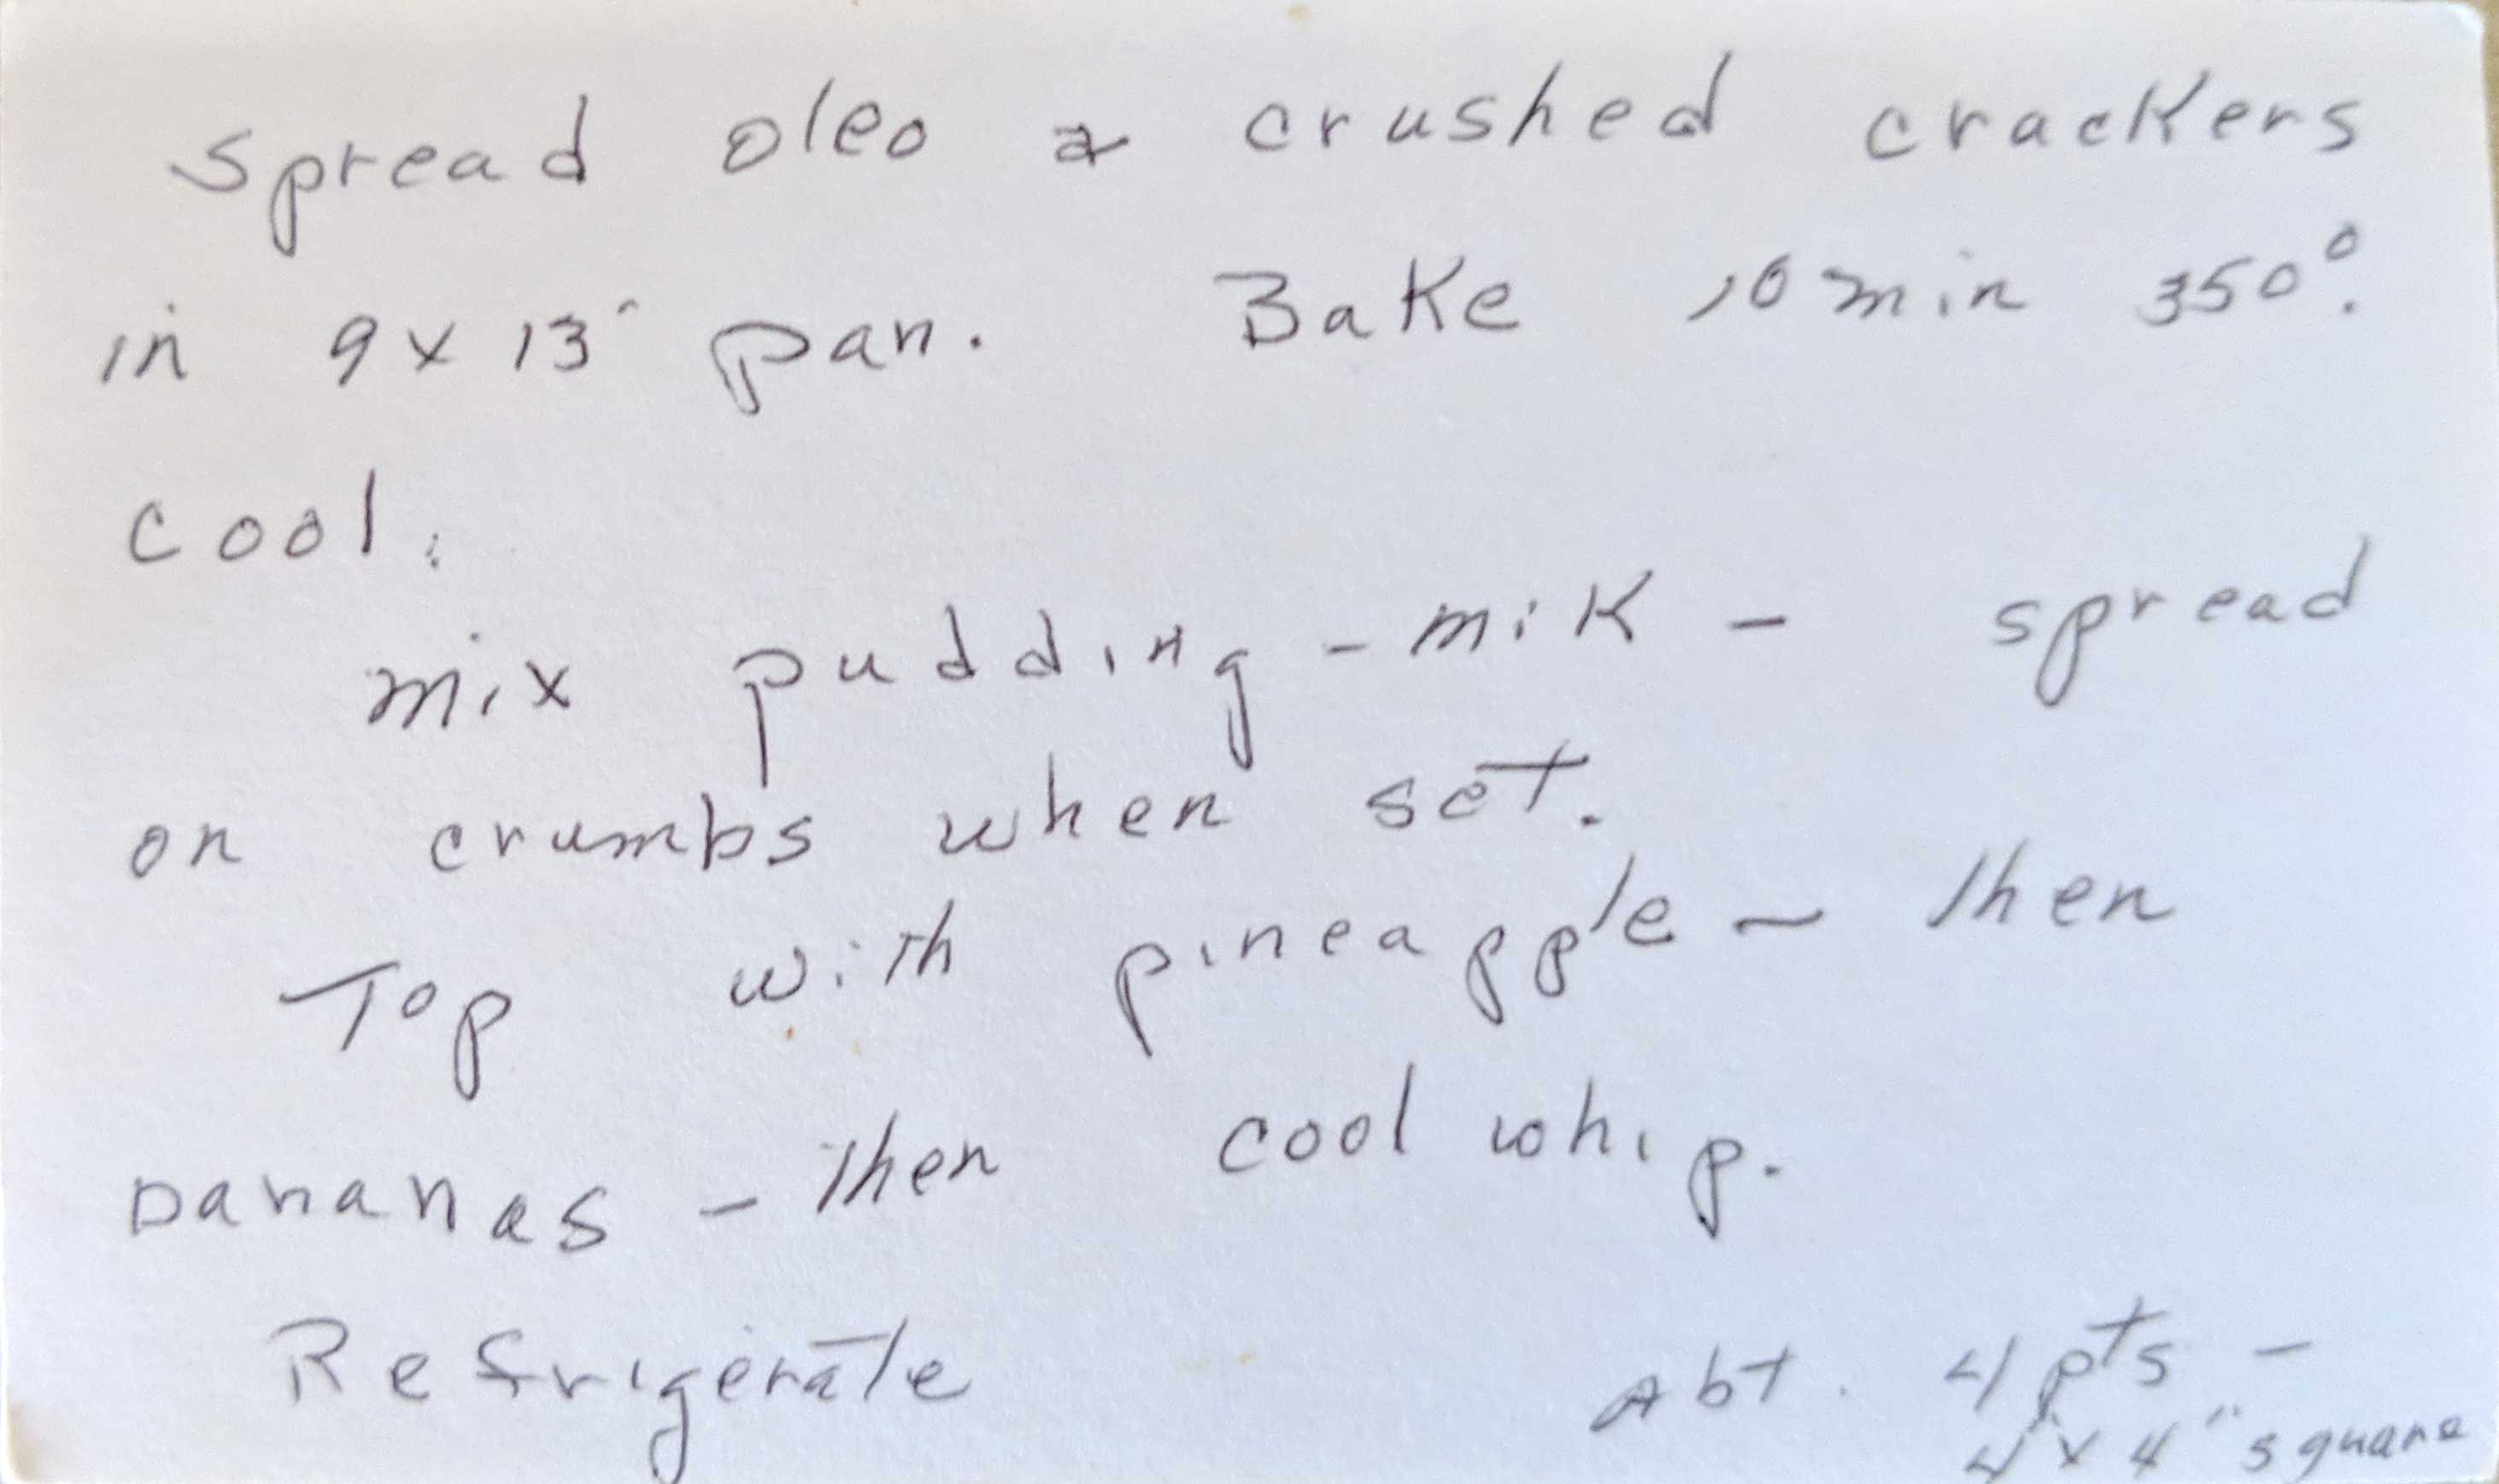 Spread oleo & crushed crackers
in 9 x 13" pan. Bake 10 min 350°.
Cool.
mix pudding - mik - spread
on crumbs when set.
Top with pineapple - then
bananas - then cool whip.
Refrigerate Abt. 4 pts -
4 x 4" square